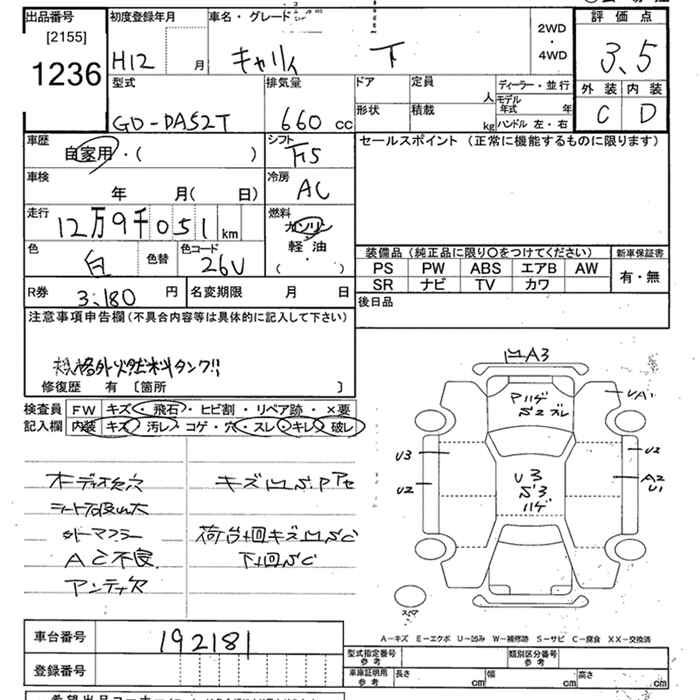 出品番号
[2155]
1236
初度登録年月
H12 月
車名・グレード
キャリィ 下
2WD
・
4WD
評価点
3.5
外装 内装
C D
型式
GD-DA52T
排気量
660 cc
ドア
定員
人
形状
積載
kg
ディーラー・並行
モデル年式 年
ハンドル 左・右
車歴
自家用・( )
シフト
F5
セールスポイント (正常に機能するものに限ります)
車検
年 月( 日)
冷房
AC
走行
12万9千051 km
燃料
ガソリン
・
軽油
・
( )
色
白
色替
色コード
26U
装備品 (純正品に限り○をつけてください)
新車保証書
PS PW ABS エアB AW
SR ナビ TV カワ
有・無
R券
3.180 円
名変期限 月 日
後日品
注意事項申告欄(不具合内容等は具体的に記入して下さい)
規格外燃料タンク!!
修復歴 有 〔箇所 〕
検査員
記入欄
FW キズ・飛石・ヒビ割・リペア跡・×要
内装 キズ・汚レ・コゲ・穴・スレ・キレ・破レ
オーディオ欠穴
キズ凹SPアセ
外マフラー
荷台廻キズ凹SC
AC不良
下廻SC
アンテナ欠
凹A3
Pハゲ
S2ズレ
UA1
U3
U2
U2
A2
U1
U3
S3
ハゲ
スペア
A-キズ E-エクボ U-凹み W-補修跡 S-サビ C-腐食 XX-交換済
車台番号
192181
登録番号
型式指定番号
参考
類別区分番号
参考
車庫証明用
参考
長さ cm
幅 cm
高さ cm